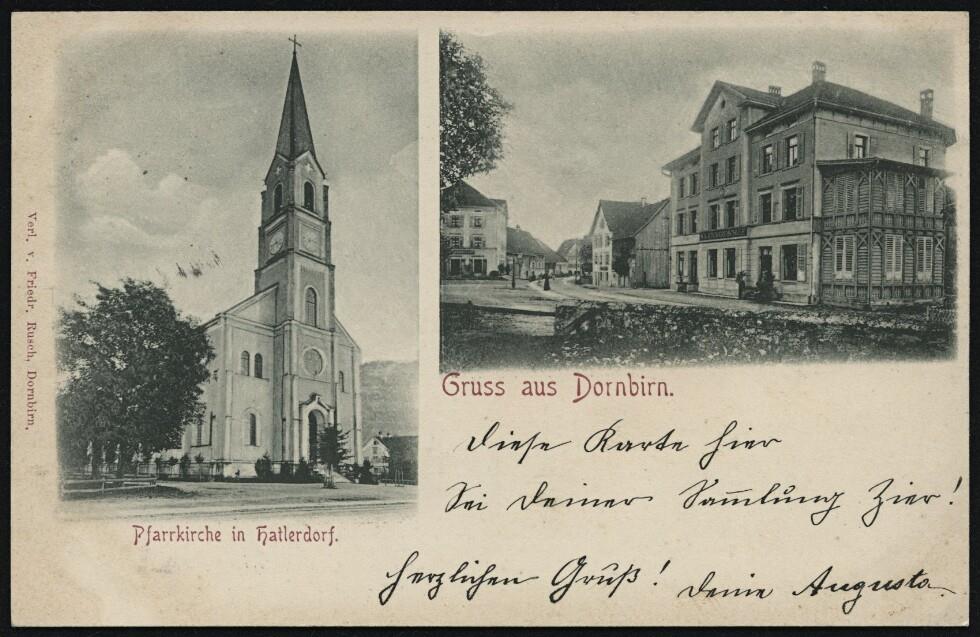 Verl. v. Friedr. Rusch, Dornbirn.
Pfarrkirche in Hatlerdorf.
Gruss aus Dornbirn.
Diese Karte hier
Sei Deiner Sam̅lung Zier!
Herzlichen Gruß! Deine Augusta.